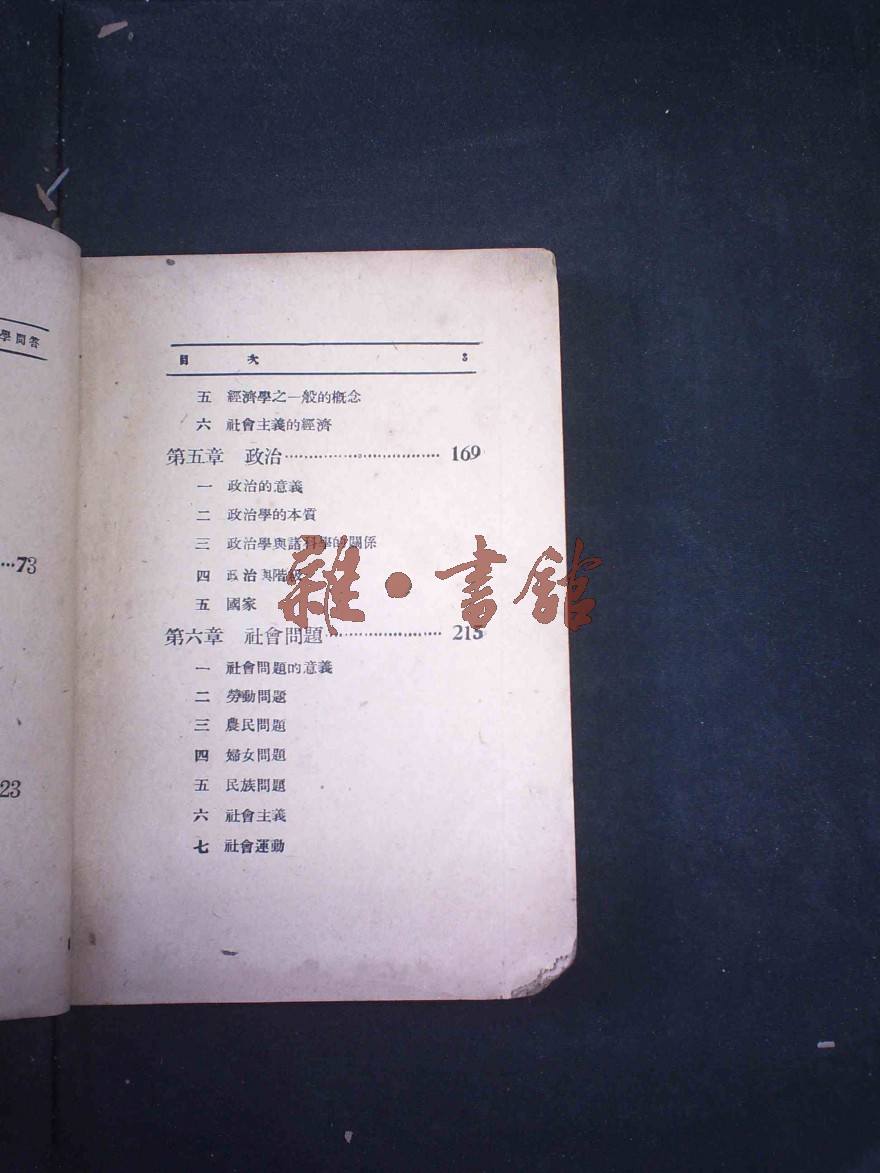 學問答
…73
23
目 次 3
五 經濟學之一般的概念
六 社會主義的經濟
第五章 政治……………………… 169
一 政治的意義
二 政治學的本質
三 政治學與諸科學的關係
四 政治與階級
五 國家
第六章 社會問題……………… 215
一 社會問題的意義
二 勞動問題
三 農民問題
四 婦女問題
五 民族問題
六 社會主義
七 社會運動
雜·書館